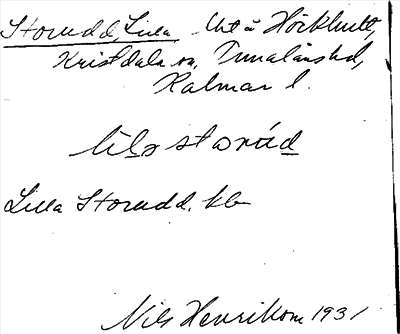 Storudd, Lilla Urt å Hörkhult,
Kristdala sn, Tunaläns hd,
Kalmar l.
lilə storúd
Lilla Storudd. kle
Nils Henrikson 1931